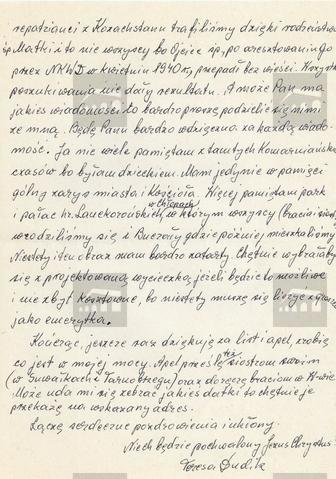 repatrianci z Kazachstanu trafiliśmy dzięki rodzeństwu
śp. Matki i to nie wszyscy bo Ojciec śp. po aresztowaniu go
przez NKWD w kwietniu 1940 r. przepadł bez wieści. Wszystkie
poszukiwania nie dały rezultatu. A może Pan ma
jakieś wiadomości to bardzo proszę podzielić się nimi
ze mną. Będę Panu bardzo wdzięczna za każdą wiado-
mość. Ja nie wiele pamiętam z tamtych Komarniańskich
czasów bo byłam dzieckiem. Mam jedynie w pamięci
gólny zarys miasta i Kościoła. Więcej pamiętam park
i pałac hr. Lanckorońskich w Chłopach, w którym wszyscy (bracia i siostry)
urodziliśmy się i Buczały gdzie później mieszkaliśmy
Niestety i tu obraz mam bardzo zatarty. Chętnie wybrałabym
się z projektowaną wycieczką jeżeli będzie to możliwe
i nie zbyt kosztowne, bo niestety muszę się liczyć z groszem
jako emerytka.
Kończąc, jeszcze raz dziękuję za list i apel, zrobię
co jest w mojej mocy. Apel prześlę też siostrom swoim
(w Suwałkach i Tarnobrzegu) oraz doręczę braciom w W-wie
Może uda mi się zebrać jakieś datki to chętnie je
przekażę na wskazany adres.
Łączę serdeczne pozdrowienia i ukłony.
Niech będzie pochwalony Jezus Chrystus
Teresa Dudik